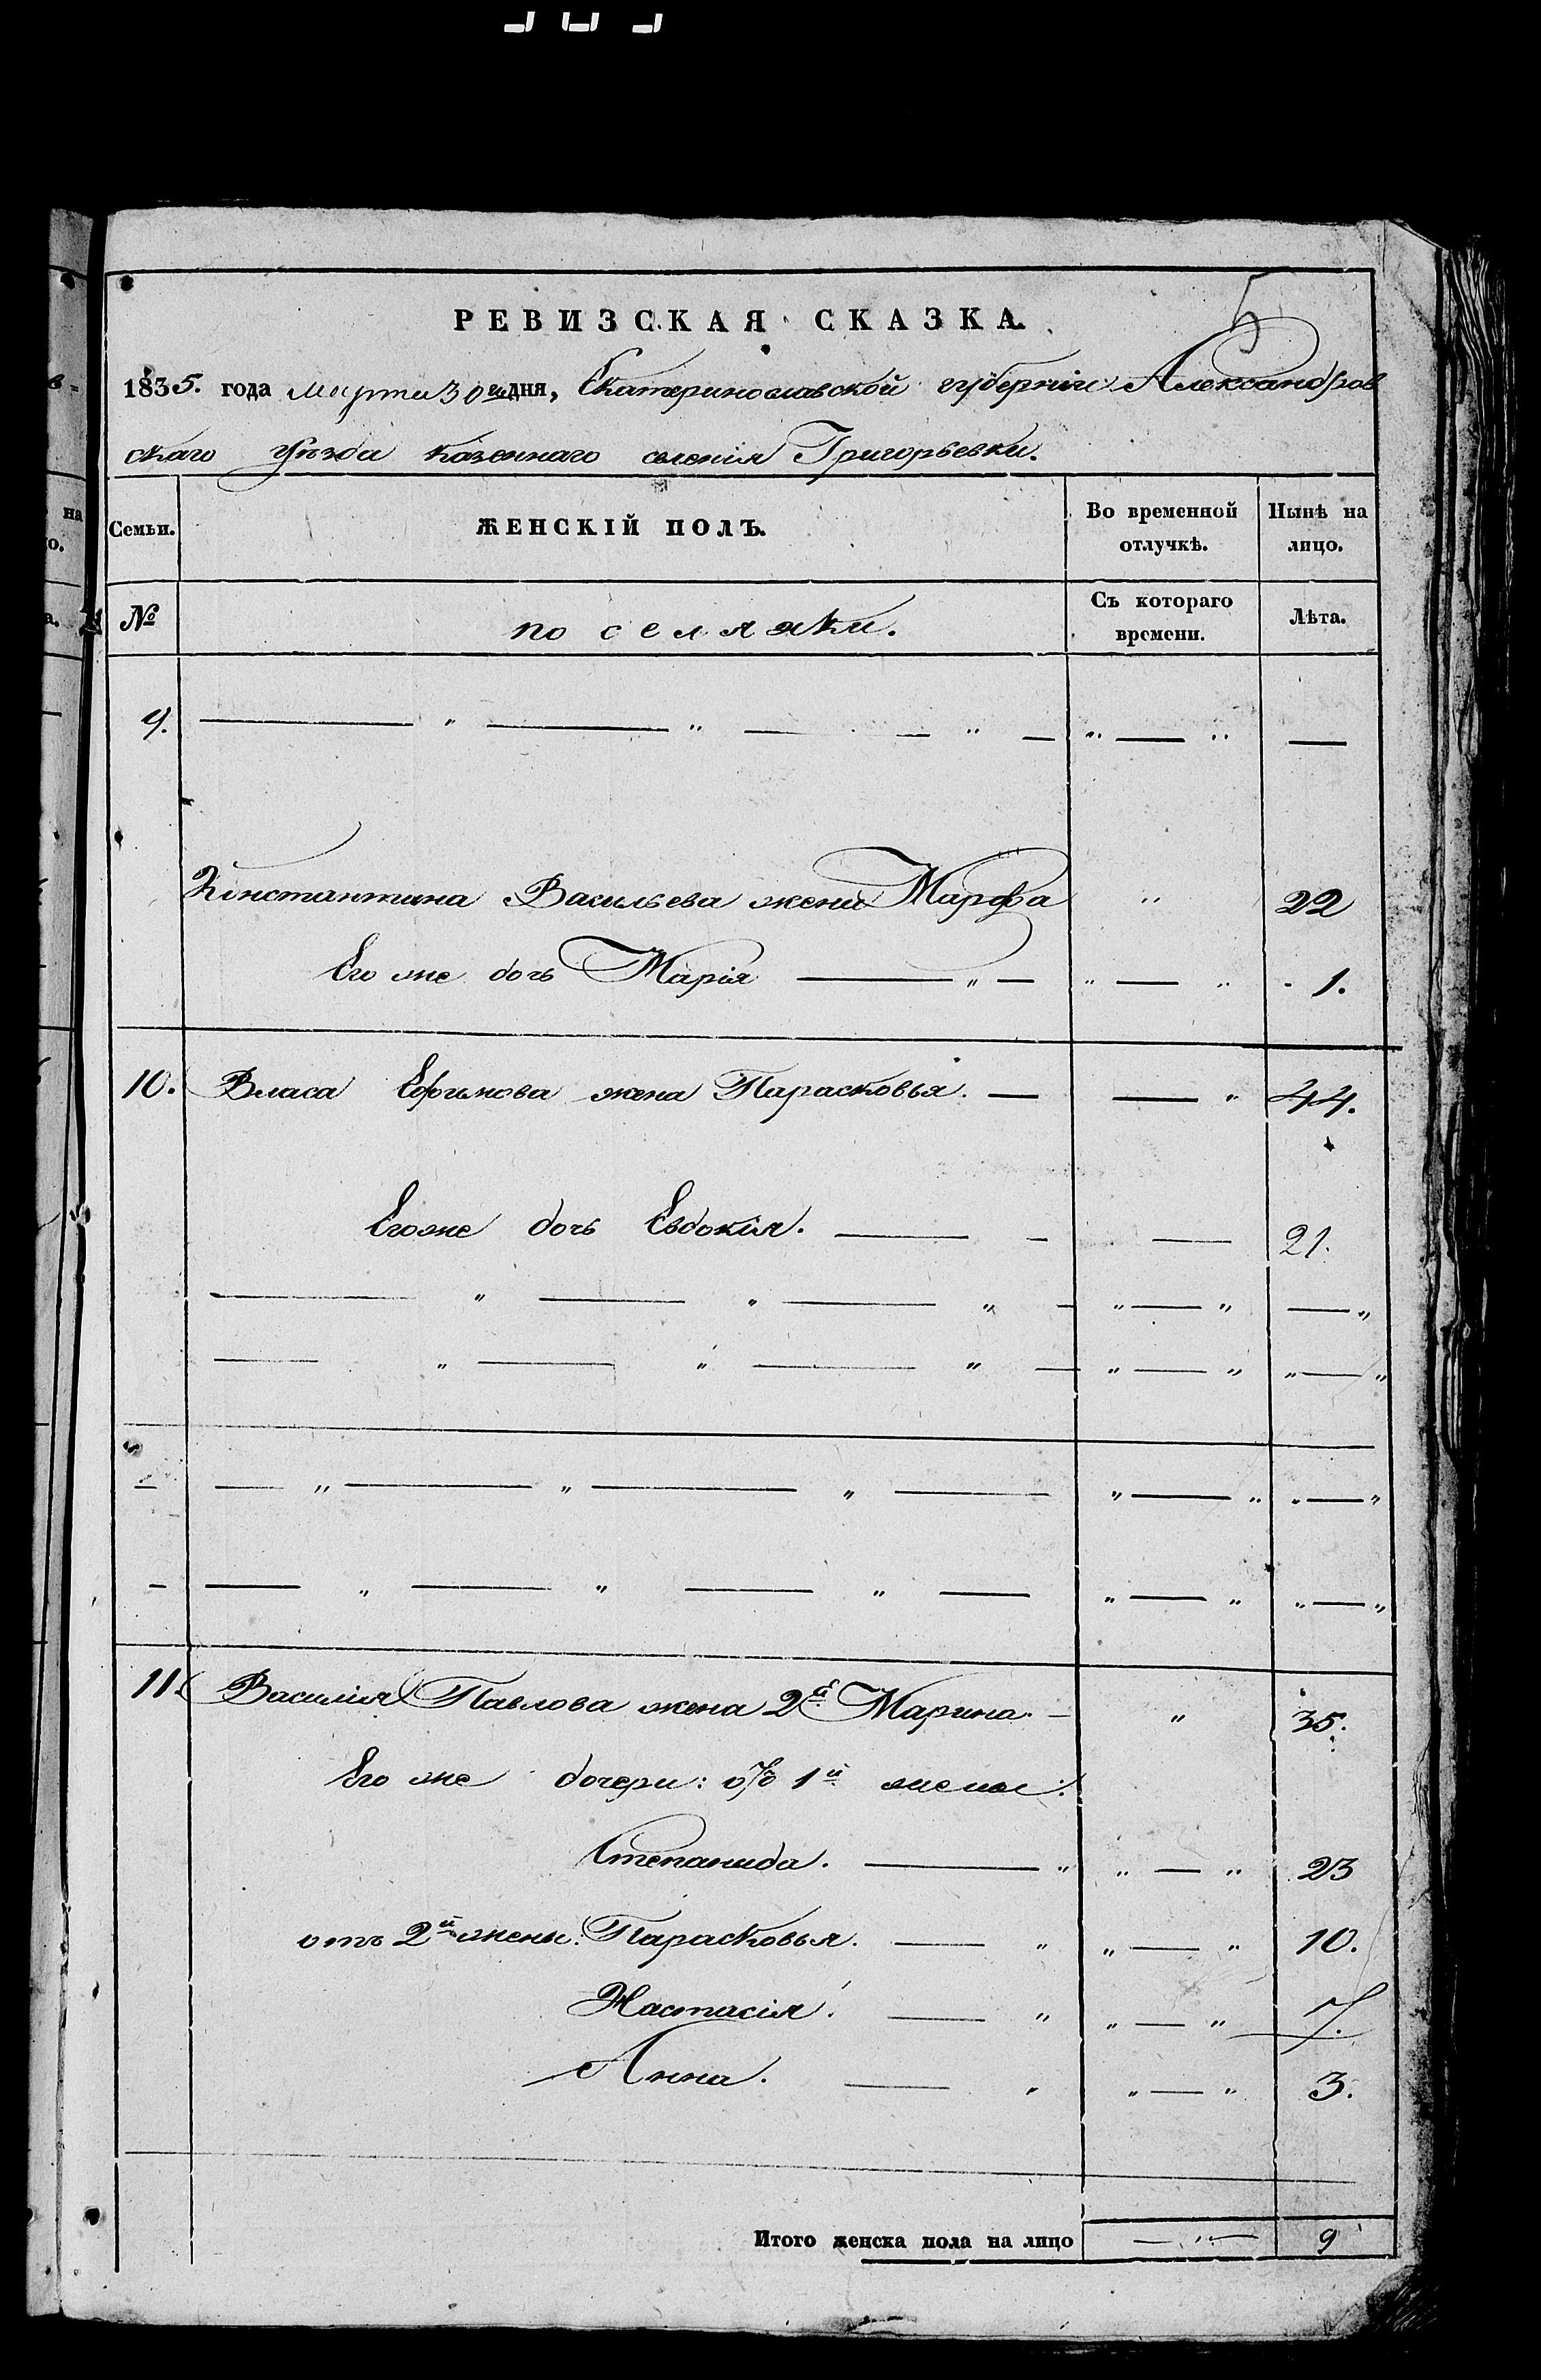 5
РЕВИЗСКАЯ СКАЗКА.
1835. года Марта 30го дня, Екатеринославской губерніи Александров
скаго уѣзда казеннаго селенія Григорьевки.
Семьи. ЖЕНСКІЙ ПОЛЪ. Во временной отлучкѣ. Нынѣ на лицо.
№ поселяяѣи. Съ котораго времени. Лѣта.
9. — " — " — " — " — " —
Константина Васильева жена Марфа " 22
Его же дочь Марія — " — " — " 1.
10. Власа Ефимова жена Парасковья. — — " 44.
Егоже дочь Евдокія. — — — 21.
— " — " — " — " — " — "
— " — " — " — " — " " — "
— — " — " — " — " — " " — "
— — " — " — " — " — " " — "
11. Василія Павлова жена 2й Марина. — " 35.
Его же дочери: отъ 1й жены:
Степанида. — " " — " 23
отъ 2й жены: Парасковья. — " " — " 10.
Настасія. — " " — " 7.
Анна. — " " — " 3.
Итого женска пола на лицо — " — 9